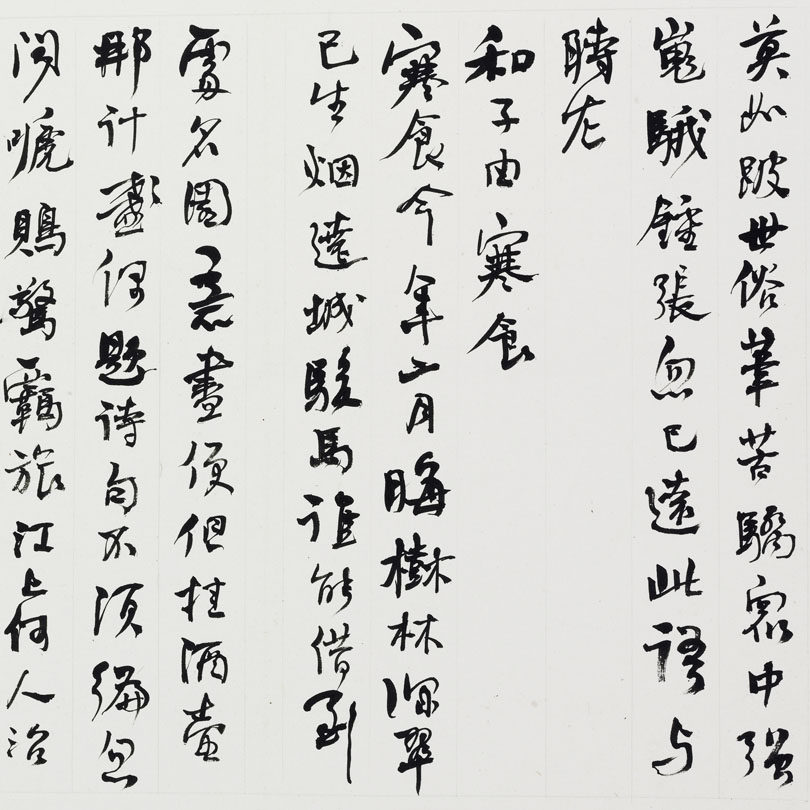 莫如跛世俗筆苦驕眾中強
嵬騀鍾張忽已遠此語与
時左
和子由寒食
寒食今年二月晦樹林深翠
已生烟遶城駿馬誰能借到
處名園意盡便但挂酒壺
那計盞偶題詩句不須編忽
聞嗁鵙驚羈旅江上何人治